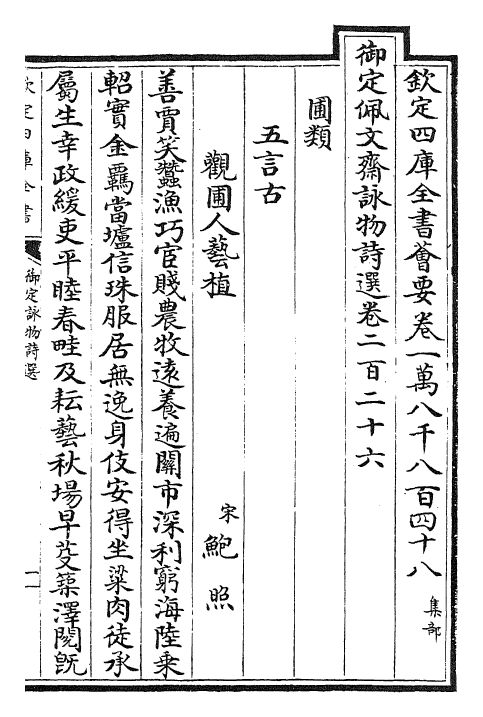 欽定四庫全書薈要卷一萬八千八百四十八 集部
御定佩文齋詠物詩選卷二百二十六
圃類
五言古
觀圃人藝植 宋 鮑照
善賈笑蠶漁巧宦賤農牧遠養遍關市深利窮海陸乗
軺實金羈當壚信珠服居無逸身伎安得坐粱肉徒承
屬生幸政緩吏平睦春畦及耘藝秋場早芟築澤閲既
欽定四庫全書
御定詠物詩選
一